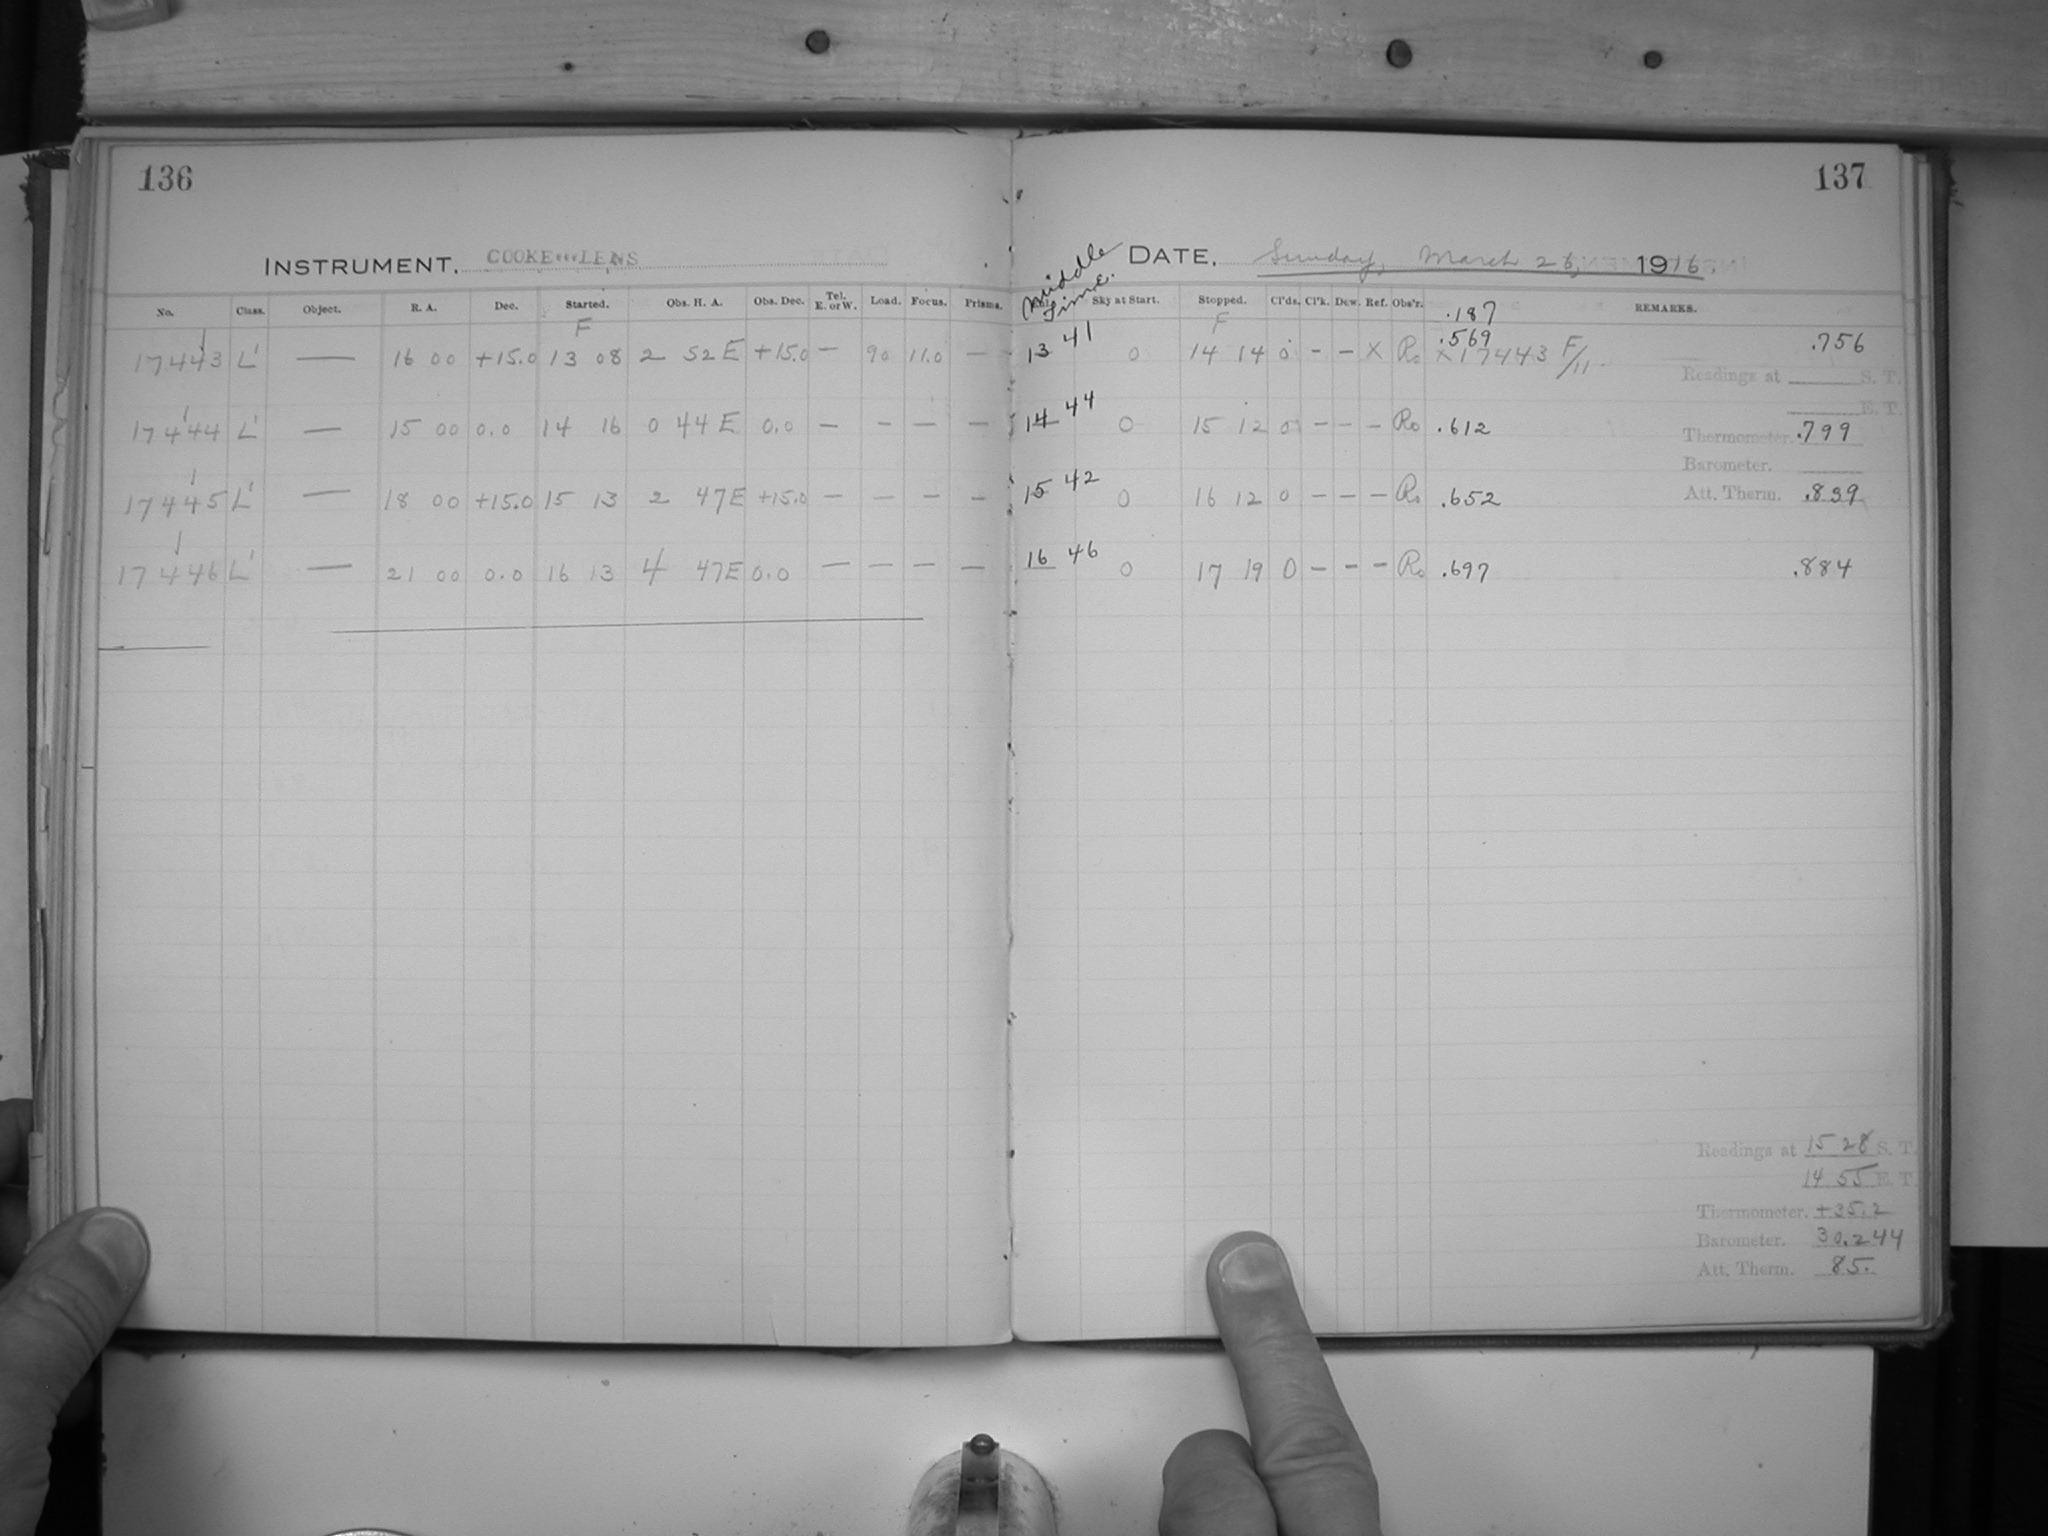 136
INSTRUMENT. COOKE LENS
No. Class. Object. R. A. Dec. Started. Obs. H. A. Obs. Dec. Tel. E. or W. Load. Focus. Prisms.
F
17443 L' — 16 00 +15.0 13 08 2 52 E +15.0 — 90 11.0 —
17444 L' — 15 00 0.0 14 16 0 44 E 0.0 — — — —
17445 L' — 18 00 +15.0 15 13 2 47 E +15.0 — — — —
17446 L' — 21 00 0.0 16 13 4 47 E 0.0 — — — —
137
DATE. Sunday, March 26, 1916.
Middle Time.
Sky at Start. Stopped. Cl'ds. Cl'k. Dew. Ref. Obs'r. REMARKS.
F .187
13 41 0 14 14 0 – – X Ro .569 .756
x17443 F/11.
Readings at S. T.
E. T.
14 44 0 15 12 0 – – – Ro .612 .799
Thermometer.
Barometer.
15 42 0 16 12 0 – – – Ro .652 .839
Att. Therm.
16 46 0 17 19 0 – – – Ro .697 .884
Readings at 15 28 S. T.
14 55 E. T.
Thermometer. +35.2
Barometer. 30.244
Att. Therm. 85.